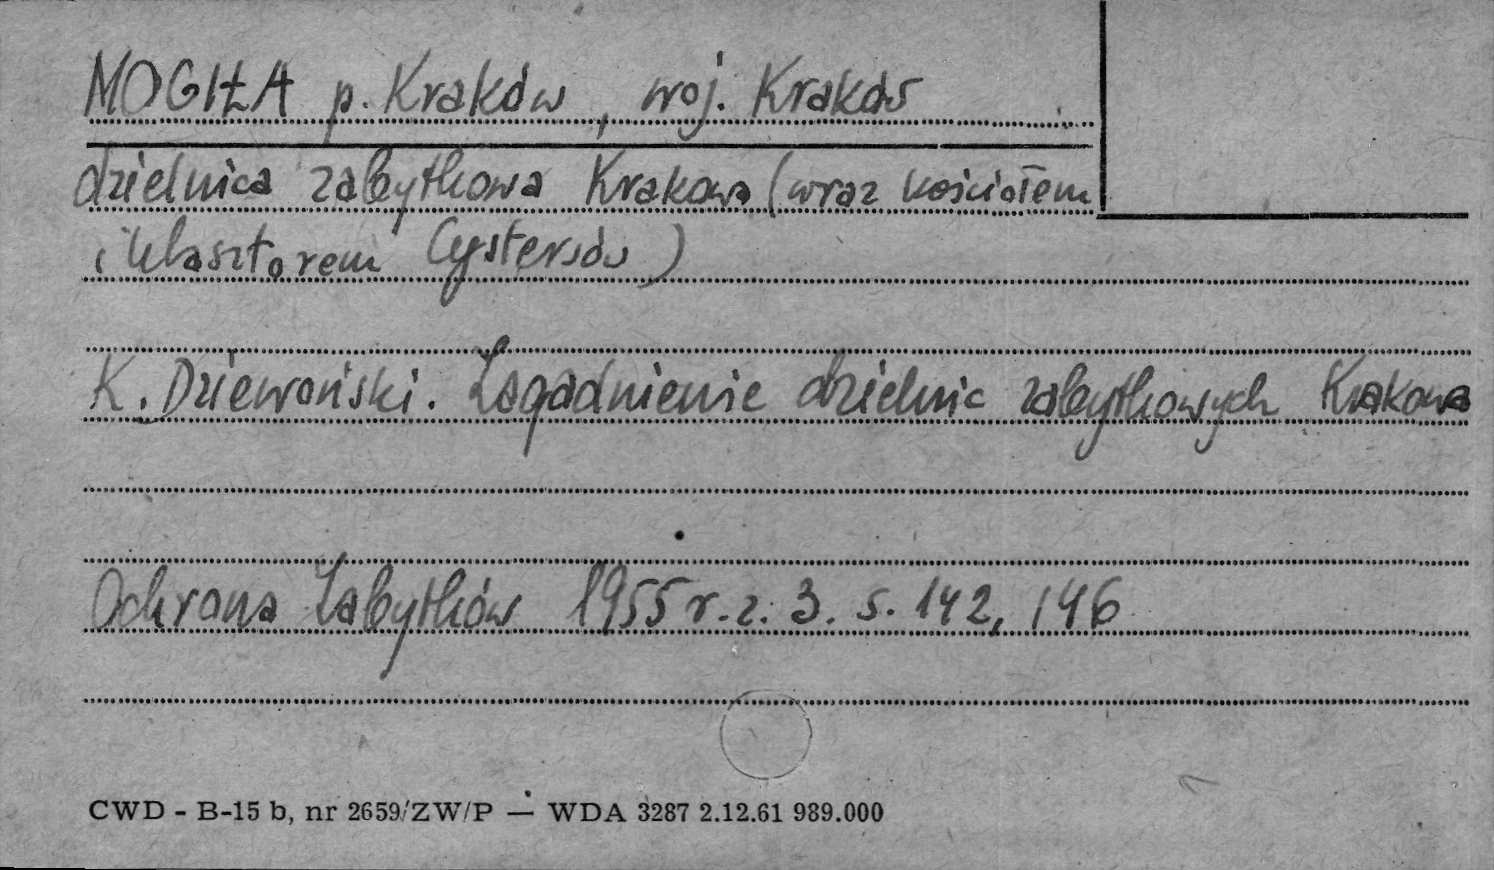 MOGIŁA p. Kraków, woj. Kraków
dzielnica zabytkowa Krakowa (wraz kościołem
i klasztorem Cystersów)
K. Dziewoński. Zagadnienie dzielnic zabytkowych Krakowa
Ochrona Zabytków 1955 r. z. 3. s. 142, 146
CWD - B-15 b, nr 2659/ZW/P — WDA 3287 2.12.61 989.000